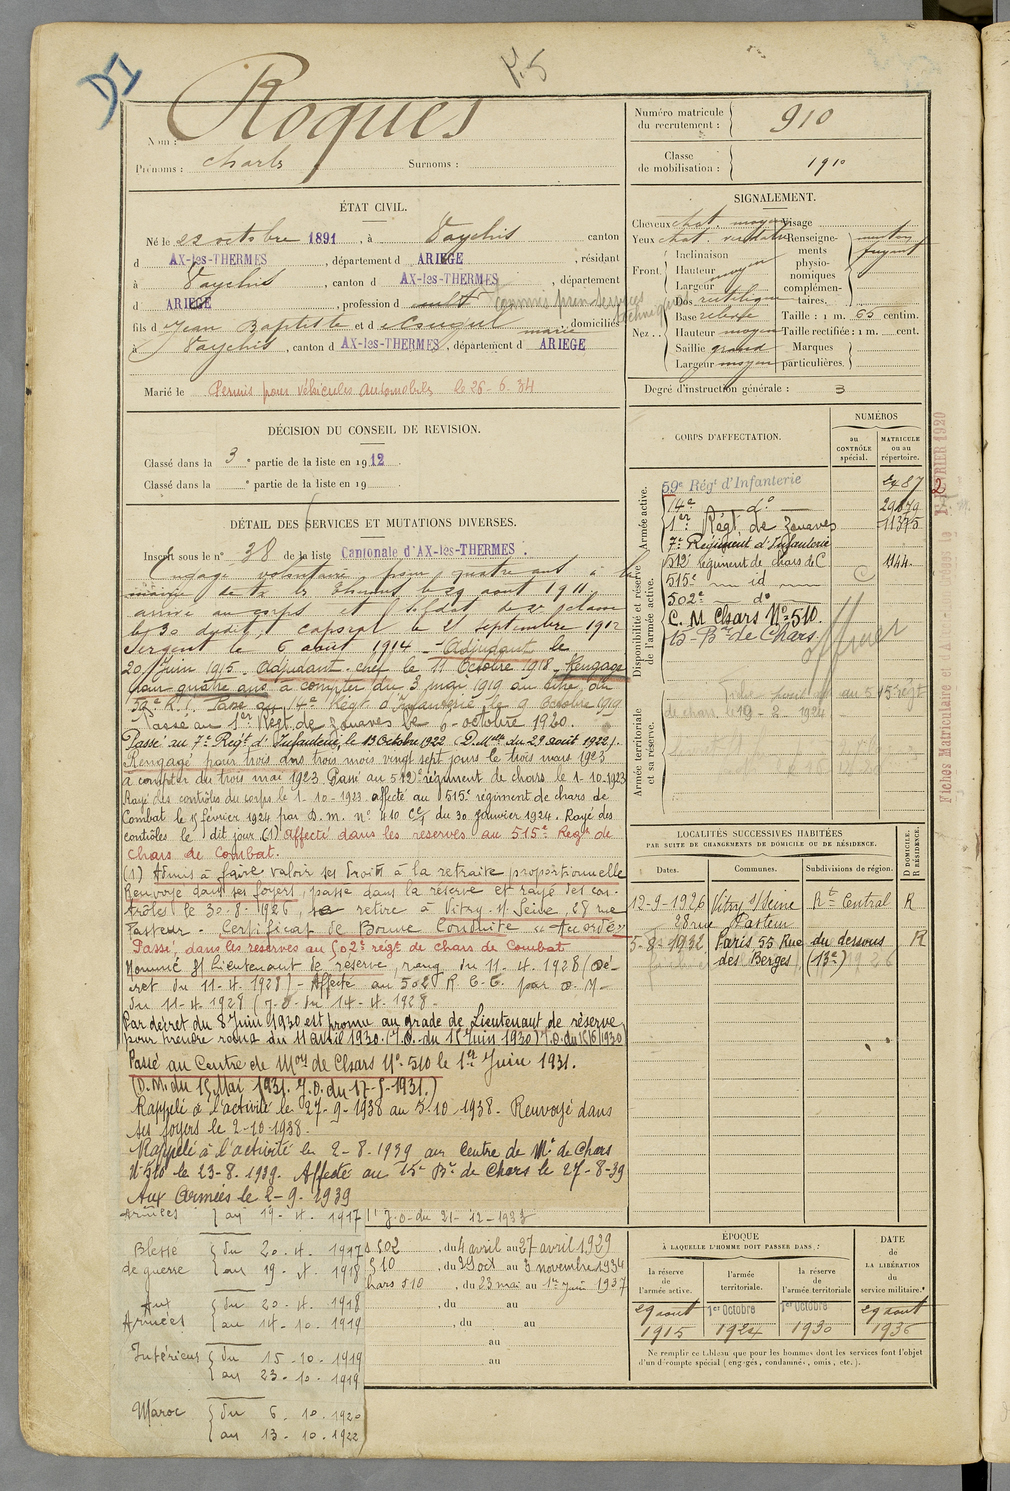 D1
K5
Nom : Roques
Prénoms : Charles Surnoms :
Numéro matricule du recrutement : 910
Classe de mobilisation : 1910
ÉTAT CIVIL.
Né le 22 octobre 1891, à Vaychis canton
d AX-les-THERMES, département d ARIEGE, résidant
à Vaychis, canton d AX-les-THERMES, département
d ARIEGE, profession d cult commis pren services techniques
fils d Jean Baptiste et d marie domiciliés
à Vaychis, canton d AX-les-THERMES, département d ARIEGE
Marié le Permis pour véhicules automobiles le 26-6.34
SIGNALEMENT.
Cheveux chat. moyen Visage
Yeux chat. Renseignements physionomiques complémentaires.
Front. Inclinaison
Hauteur moyen
Largeur
Nez .. Dos rectiligne
Base relevée Taille : 1 m. 65 centim.
Hauteur moyen Taille rectifiée : 1 m. cent.
Saillie grand Marques
Largeur moyen particulières.
Degré d'instruction générale : 3
DÉCISION DU CONSEIL DE REVISION.
Classé dans la 3e partie de la liste en 1912.
Classé dans la e partie de la liste en 19 .
DÉTAIL DES SERVICES ET MUTATIONS DIVERSES.
Inscrit sous le n° 38 de la liste Cantonale d'AX-les-THERMES.
Engagé volontaire pour quatre ans à la
mairie de le 29 aout 1911.
arrivé au corps et soldat de 2e classe
le 30 dudit, caporal le 21 septembre 1912
Sergent le 6 août 1914 - Adjudant le
20 Juin 1915. Adjudant-chef le 11 Octobre 1918. Rengagé
pour quatre ans à compter du 3 mai 1919 au titre du
59e R.I. Passé au 14e Régt d'Infanterie le 9 Octobre 1919
Passé au 1er Régt de Zouaves le 6-octobre 1920.
Passé au 7e Régt d'Infanterie, le 13 Octobre 1922 (D. Mlle du 29 août 1922).
Rengagé pour trois ans trois mois vingt sept jours le trois mars 1923
à compter du trois mai 1923. Passé au 512e régiment de chars le 1-10-1923
Rayé des contrôles du corps le 1-10-1923 affecté au 515e régiment de chars de
Combat le 15 février 1924 par D.M. n° 410 du 30 Janvier 1924. Rayé des
contrôles le dit jour (1) affecté dans les réserves au 515e Régt de
chars de Combat.
(1) Admis à faire valoir ses droits à la retraite proportionnelle
Renvoyé dans ses foyers, passe dans la réserve et rayé des con-
trôles le 30-8-1926, se retire à Vitry s/ Seine, 28 rue
Pasteur. Certificat de Bonne Conduite "Accordé"
Passé dans les réserves au 502e régt de chars de Combat
Nommé S/Lieutenant de réserve, rang du 11-4.1928 (Dé-
cret du 11-4.1928) - Affecté au 502e R.C.C. par D.M-
du 11-4.1928 (J.O. du 14-4.1928-
Par décret du 8 Juin 1930 est promu au grade de Lieutenant de réserve
pour prendre rang du 11 avril 1930. (J.O. du 15 Juin 1930) J.O. du 15/6/1930
Passé au Centre de Mon de Chars N° 510 le 1er Juin 1931.
(D.M. du 15 Mai 1931. J.O. du 17-5-1931.)
Rappelé à l'activité le 27-9-1938 au 5.10 1938. Renvoyé dans
ses foyers le 2-10-1938.
Rappelé à l'activité le 2-8.1939 au Centre de Mon de Chars
N° 510 le 23-8.1939. Affecté au 15e Bn de Chars le 27-8-39
Aux Armées le 2-9.1939
Armées au 19-4.1917
J.O. du 21-12-1933
Blessé de guerre du 20.4.1917 au 19.4.1918
Aux Armées du 20-4.1918 au 14-10.1919
Intérieur du 15-10.1919 au 23.10.1919
Maroc du 6.10.1920 au 13-10.1922
502, du 4 avril au 27 avril 1929
510, du 29 oct au 3 novembre 1934
Chars 510, du 23 mai au 1er Juin 1937
, du au
, du au
au
au
CORPS D'AFFECTATION.
NUMÉROS
au CONTRÔLE spécial.
MATRICULE ou au répertoire.
Armée active.
Disponibilité et réserve de l'armée active.
Armée territoriale et sa réserve.
59e Régt d'Infanterie 2487
14e do 29879
1er Régt de Zouaves 11375
7e Régiment d'Infanterie
512e régiment de chars de C 1144.
515e id
502e do
C. M Chars N° 510.
15e Bn de Chars.
Officier
au 515e régt
de chars le 19-2-1924
LOCALITÉS SUCCESSIVES HABITÉES
PAR SUITE DE CHANGEMENTS DE DOMICILE OU DE RÉSIDENCE.
Dates. Communes. Subdivisions de région. D DOMICILE. R RÉSIDENCE.
12-9-1926 Vitry s/ Seine Rt Central R
28 rue Pasteur
5-8-1932 Paris 55 Rue du dessous R
des Berges (13e)
ÉPOQUE
À LAQUELLE L'HOMME DOIT PASSER DANS :
la réserve de l'armée active.
l'armée territoriale.
la réserve de l'armée territoriale
DATE DE LA LIBÉRATION du service militaire.
29 aout 1915
1er Octobre 1924
1er Octobre 1930
29 aout 1936
Ne remplir ce tableau que pour les hommes dont les services font l'objet
d'un décompte spécial (engagés, condamnés, omis, etc.).